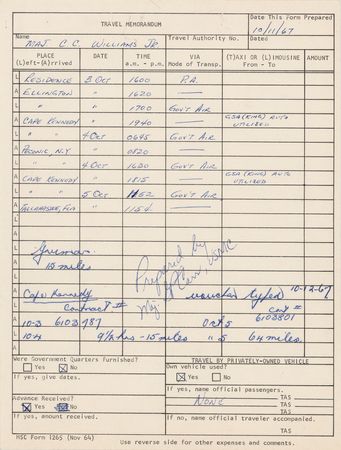 TRAVEL MEMORANDUM
Date This Form Prepared
10/11/67
Name
MAJ C.C. WILLIAMS JR.
Travel Authority No.
Dated
PLACE (L)eft-(A)rrived DATE TIME a.m. - p.m. VIA Mode of Transp. (T)AXI OR (L)IMOUSINE From - To AMOUNT
L RESIDENCE 3 OCT 1600 P.A.
A ELLINGTON " 1620 —
L " " 1700 GOV'T AIR
A CAPE KENNEDY " 1940 — GSA (KING) AUTO UTILIZED
L " " 4 OCT 0645 GOV'T AIR
A " 0820 —
L " " 4 OCT 1630 GOV'T AIR
A CAPE KENNEDY " 1815 — GSA (KING) AUTO UTILIZED
L " " 5 OCT 1152 GOV'T AIR
A TALLAHASSEE, FLA " 1154 —
15 miles
Prepared by
Maj USMC
Cape Kennedy voucher typed 10-12-67
Contract # Cont #
10-3 6103787 Oct 5 6103801
10-4 9½ hrs - 15 miles " 5 64 miles.
Were Government Quarters furnished?
Yes X No
If yes, give dates.
Advance Received?
Yes No
If yes, amount received.
TRAVEL BY PRIVATELY-OWNED VEHICLE
Own vehicle used?
X Yes No
If yes, name official passengers.
NONE
TAS
TAS
If no, name official traveler accompanied.
TAS
MSC Form 1265 (Nov 64)
Use reverse side for other expenses and comments.